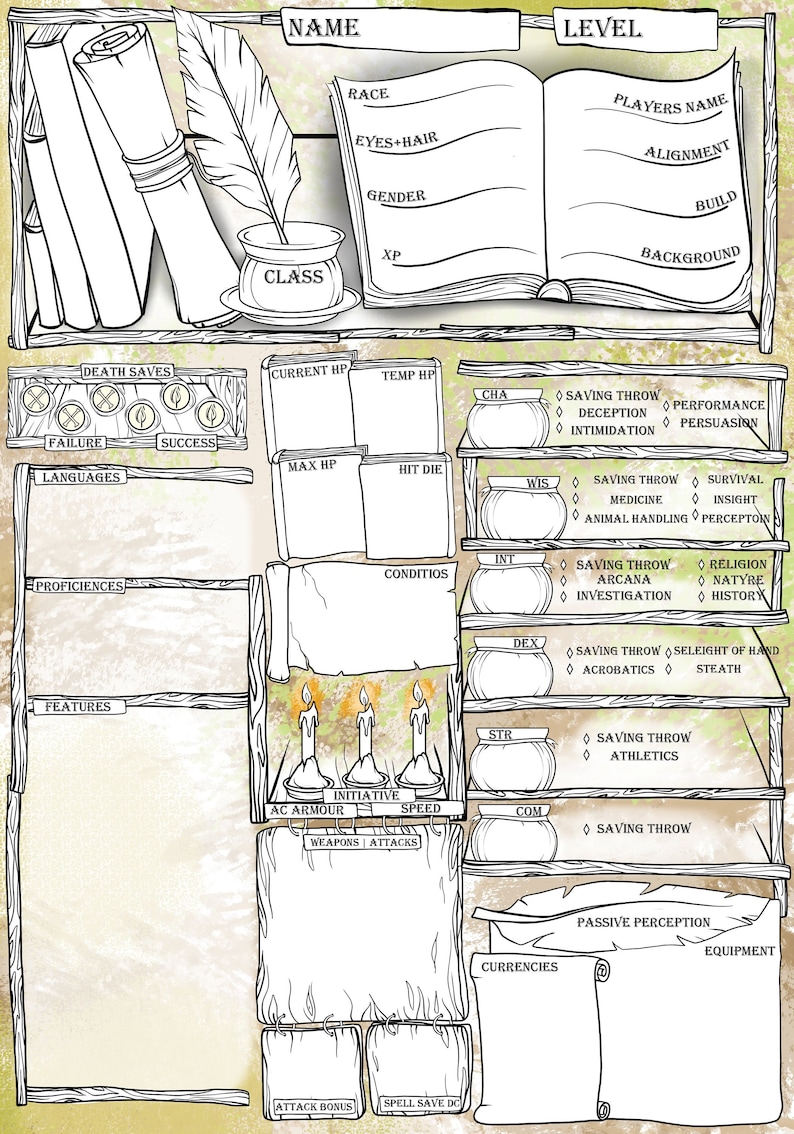 NAME
LEVEL
RACE
EYES+HAIR
GENDER
XP
PLAYERS NAME
ALIGNMENT
BUILD
BACKGROUND
CLASS
DEATH SAVES
FAILURE
SUCCESS
LANGUAGES
PROFICIENCES
FEATURES
CURRENT HP
TEMP HP
MAX HP
HIT DIE
CONDITIOS
INITIATIVE
AC ARMOUR
SPEED
WEAPONS | ATTACKS
ATTACK BONUS
SPELL SAVE DC
CHA
SAVING THROW
DECEPTION
INTIMIDATION
PERFORMANCE
PERSUASION
WIS
SAVING THROW
MEDICINE
ANIMAL HANDLING
SURVIVAL
INSIGHT
PERCEPTOIN
INT
SAVING THROW
ARCANA
INVESTIGATION
RELIGION
NATYRE
HISTORY
DEX
SAVING THROW
ACROBATICS
SELEIGHT OF HAND
STEATH
STR
SAVING THROW
ATHLETICS
COM
SAVING THROW
PASSIVE PERCEPTION
EQUIPMENT
CURRENCIES